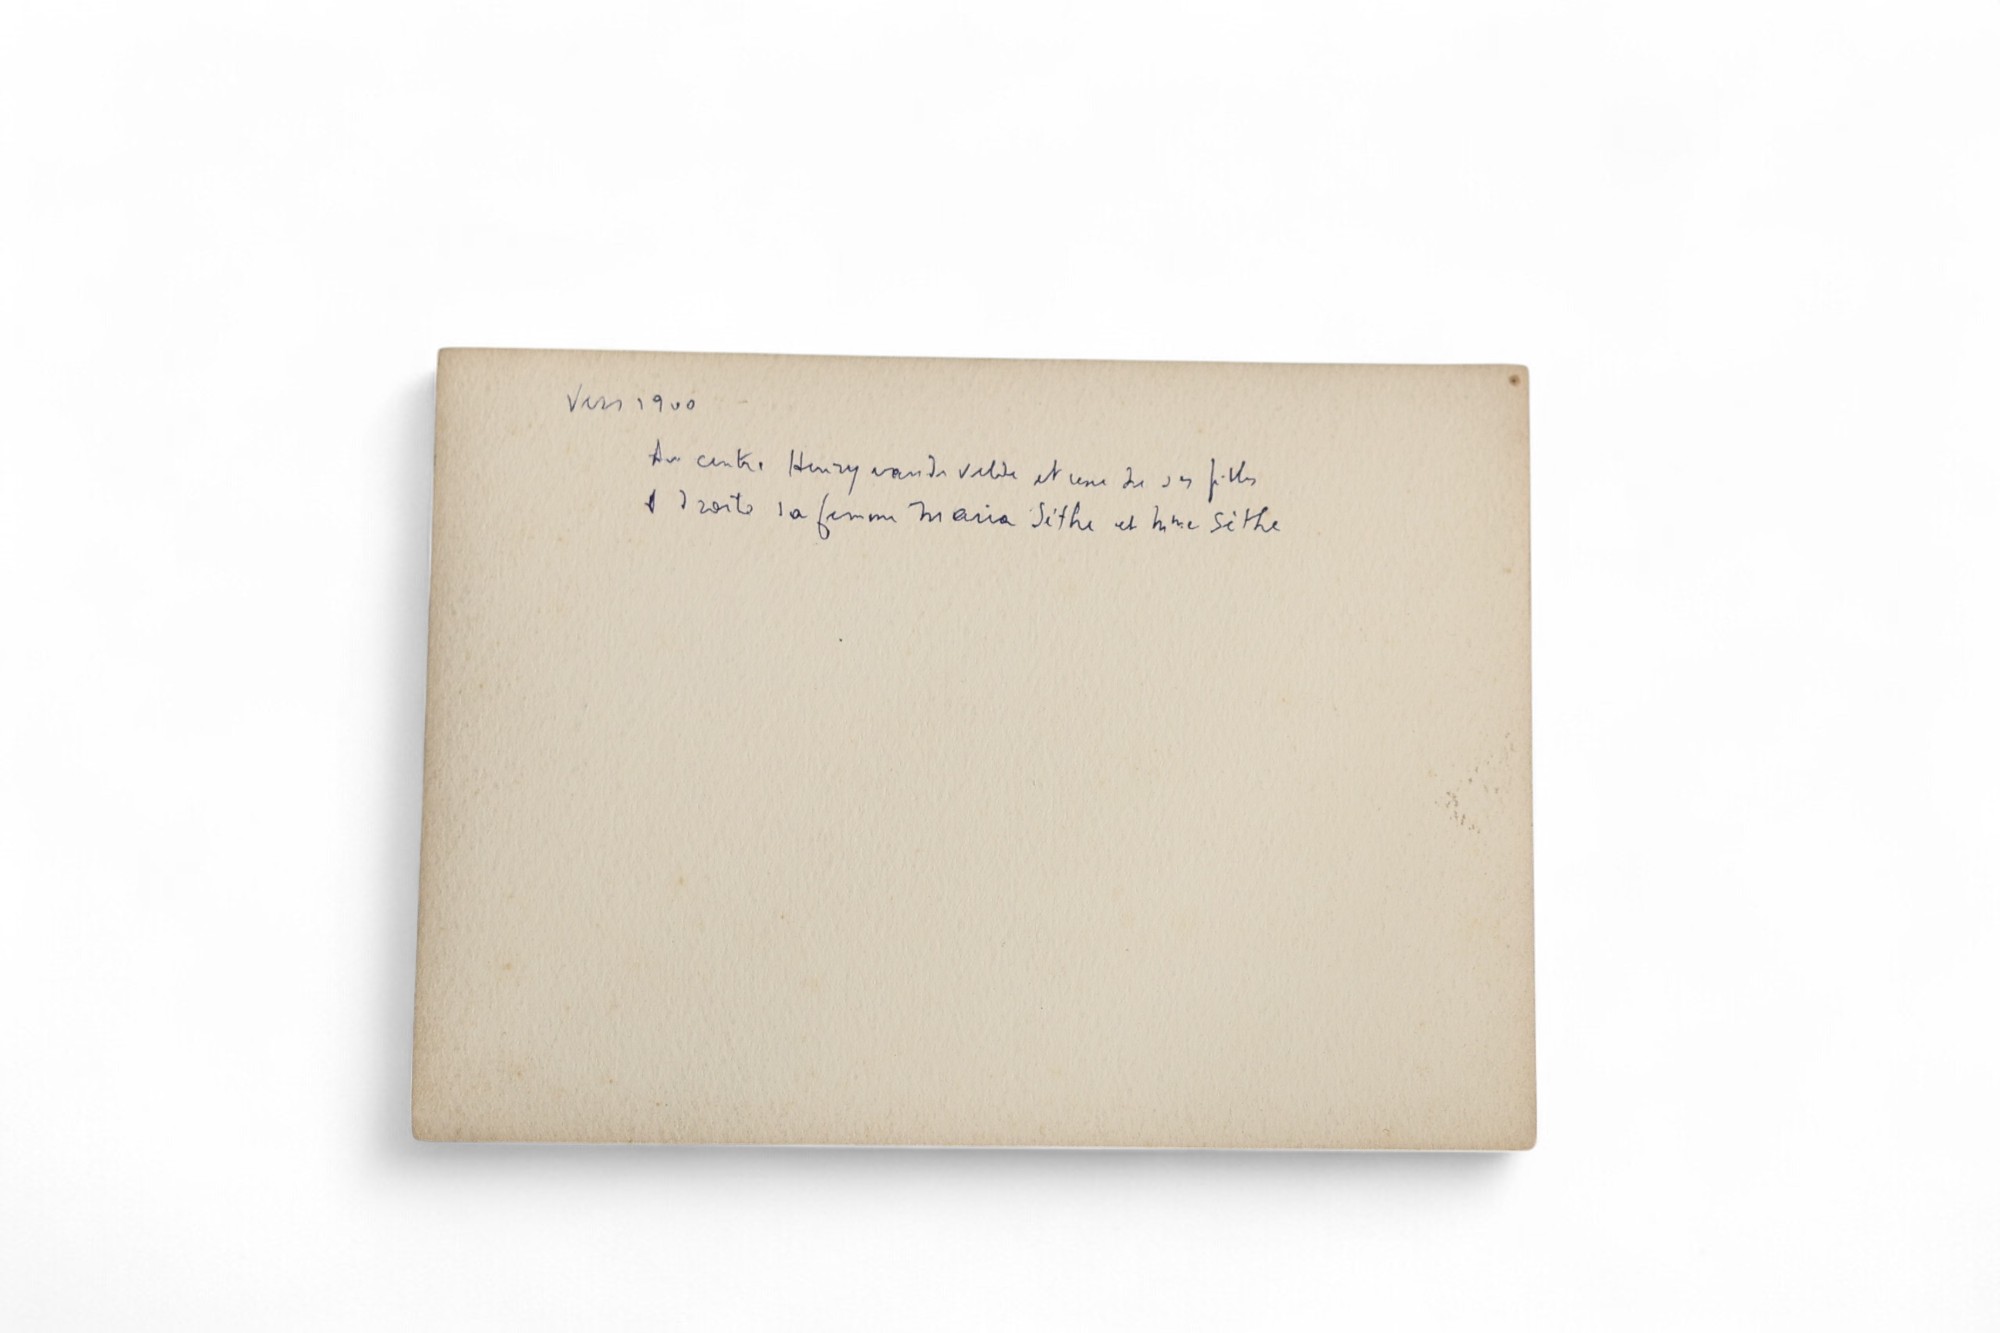 Vers 1900
Au centre Henry van de Velde et une de ses filles
à droite sa femme Maria Sèthe et Mme Sèthe